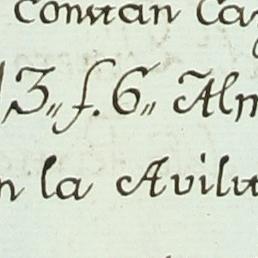 Constan Ca
13,, f. 6,, Alm
n la Avila